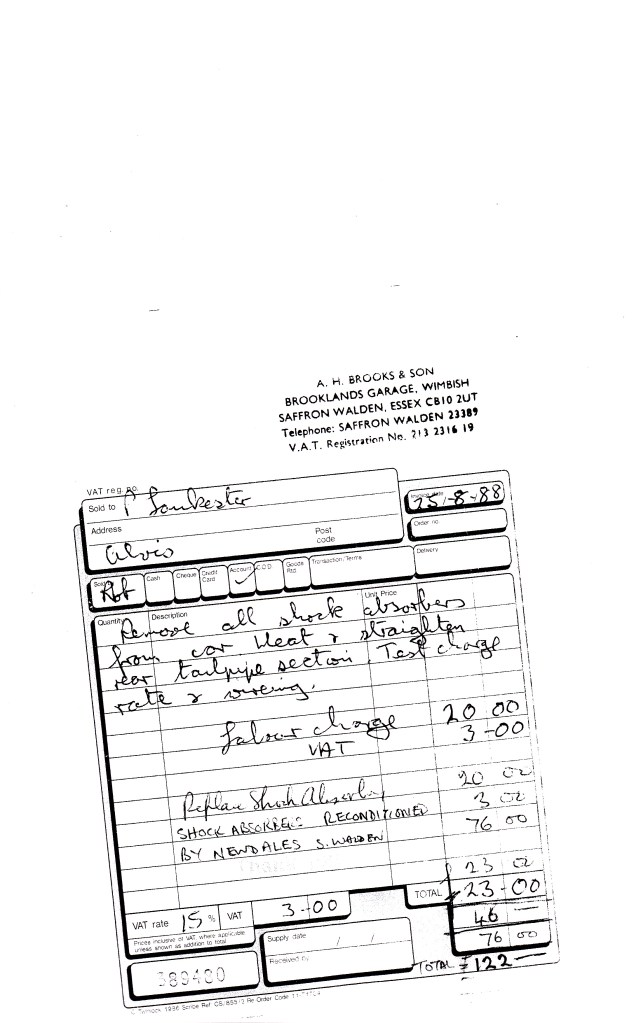 A. H. BROOKS & SON
BROOKLANDS GARAGE, WIMBISH
SAFFRON WALDEN, ESSEX CB10 2UT
Telephone: SAFFRON WALDEN 23389
V.A.T. Registration No. 213 2316 19
VAT reg. no.
Sold to P Lonkester
Invoice date 25-8-88
Address
Post code
Order no.
Alvis
Cash
Cheque
Credit Card
Account ✓
C.O.D.
Goods Rtd
Transaction/Terms
Delivery
Quantity
Description
Unit Price
Remove all shock absorbers
from car. Heat & straighten
rear tailpipe section. Test charge
rate & wireing.
Labour charge 20 00
VAT 3-00
Replace Shock Absorbers 20 00
SHOCK ABSORBERS RECONDITIONED 3 00
BY NEWDALES S. WALDEN 76 00
23 00
TOTAL 23-00
VAT rate 15 % VAT 3-00
46
Prices inclusive of VAT, where applicable
unless shown as addition to total
76 00
Supply date / /
Received by
TOTAL £122
389400